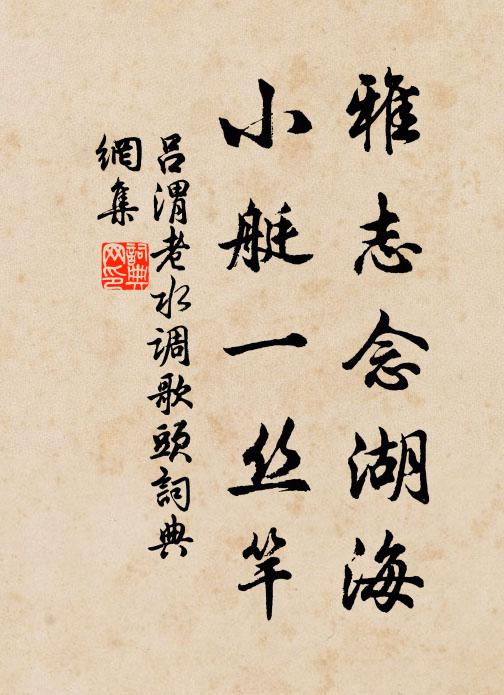 雅志念湖海
小艇一丝竿
吕渭老水调歌头詞典
網集
詞典
网印